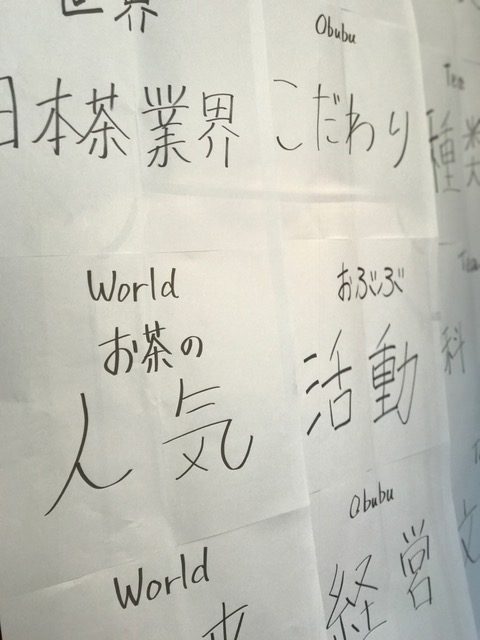 世界
日本茶業界
Obubu
こだわり
Tea
種類
World
お茶の
人気
おぶぶ
活動
Tea
科
World
Obubu
経営